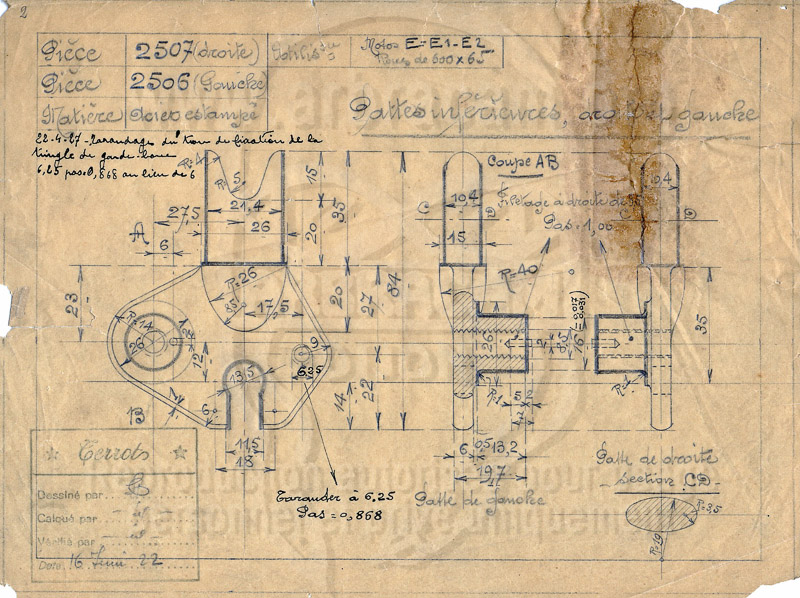 2
Pièce 2507 (droite) Utilis
Motos E-E1-E2
Roues de 600 x 65
Pièce 2506 (Gauche)
Matière Acier estampé
Pattes inférieures, gauche
22-4-27 - Taraudage du trou de fixation de la
tringle de garde-boue
6,25 pas 0,868 au lieu de 6
Coupe AB
Filetage à droite
Pas = 1,00
R=4
5
15
35
21.4
27,5
26
20
A
6
C
D
19,4
15
R=40
R=26
35
17,5
20
27
84
23
R=14
26
12
9
6.25
13,5
22
14
B
6
11,5
18
26
16
35
R=1
5
6
0,5
13,2
19,7
Tarauder à 6.25
Pas = 0,868
Patte de gauche
Patte de droite
- Section CD -
R=3,5
R=19
Terrots
Dessiné par
Calqué par
Vérifié par
Date 16 Juin 22